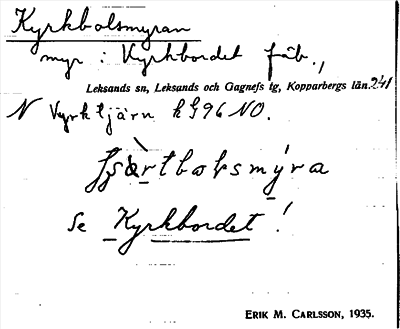 Kyrkbolsmyran
myr i Kyrkbordet fäb.,
Leksands sn, Leksands och Gagnefs tg, Kopparbergs län. 241
N Kyrktjärn k 996 NO.
Se Kyrkbordet!
ERIK M. CARLSSON, 1935.